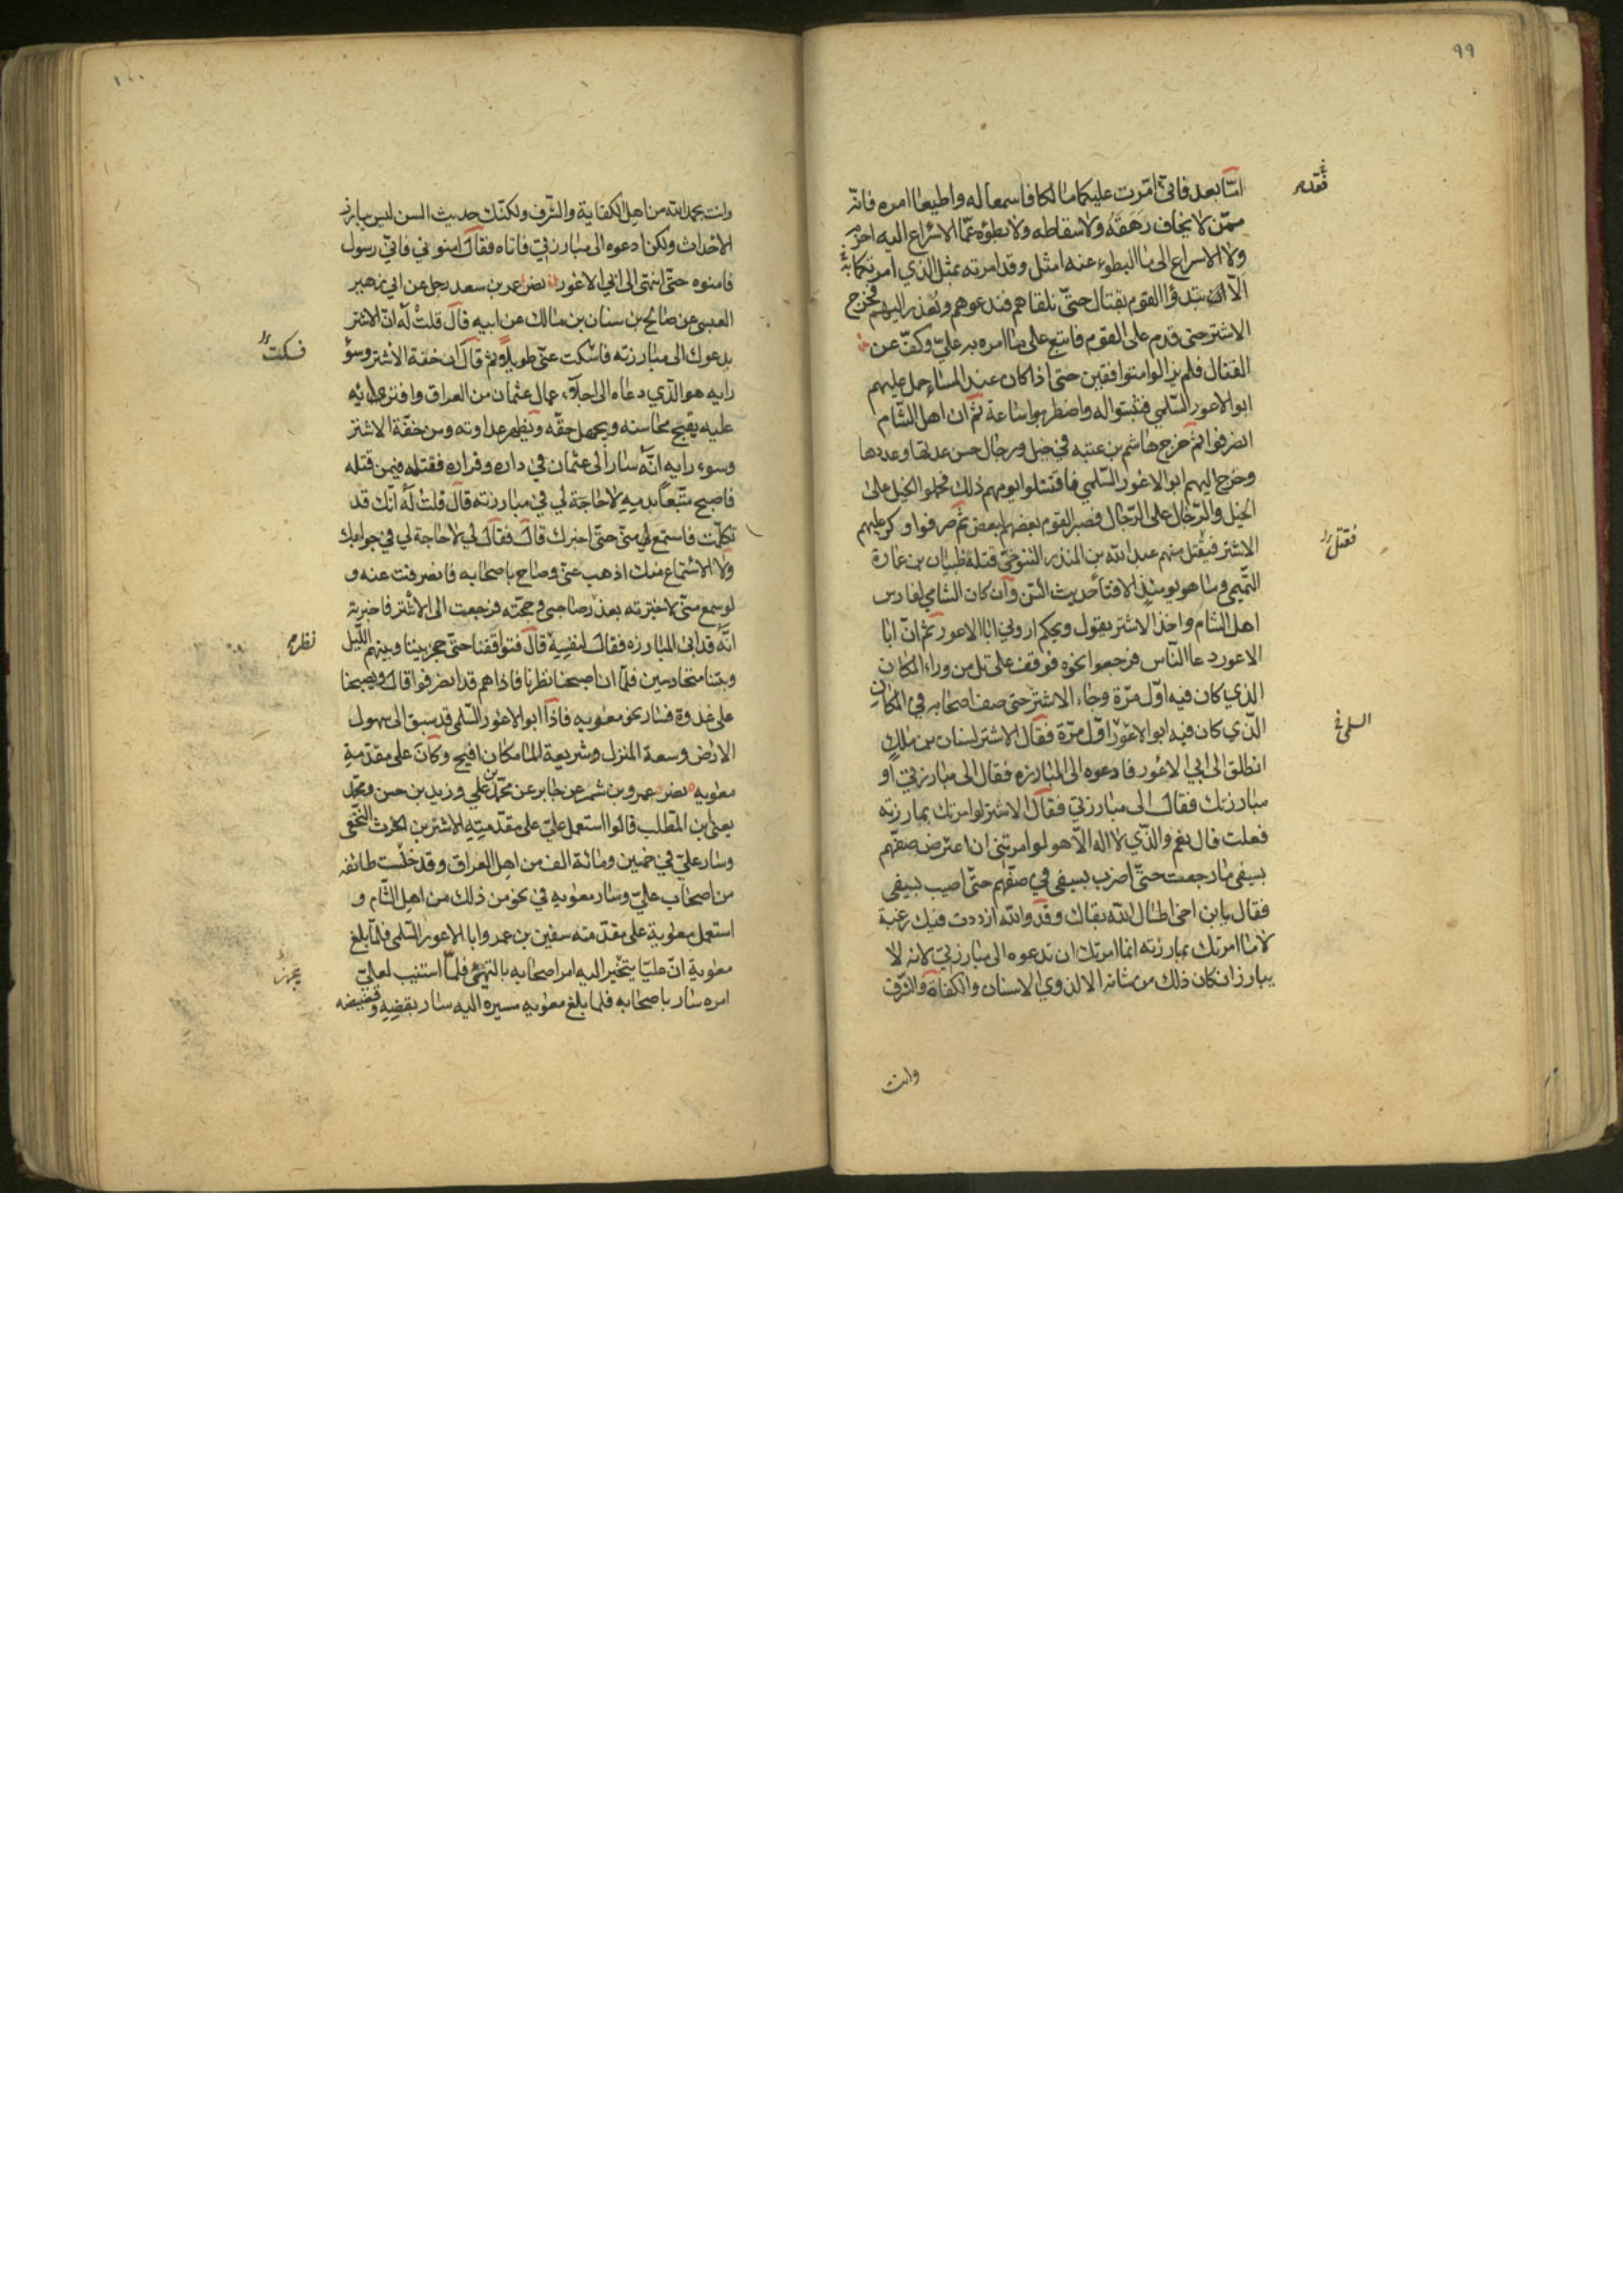 ٩٩
امّا بعد فانّي امّرت عليكما مالكا فاسمعا له واطيعا امره فانّه
ممّن لا يخاف رهقه ولا سقاطه ولا بطؤه عمّا الاسراع اليه احزم
ولا الاسراع الى ما البطوء عنه امثل وقد امرته بمثل الذي امرتكما به
الّا يبتدؤا القوم بقتال حتّى تلقاهم فتدعوهم وتعذر اليهم فخرج
الاشتر حتى قدم على القوم فاتبع على ما امره به عليّ وكفّ عن
القتال فلم يزالوا متوافقين حتى اذا كان عند المساء حمل عليهم
ابو الاعور السّلمي فثبتوا له واضطربوا ساعة ثمّ ان اهل الشّام
انصرفوا ثمّ خرج هاشم بن عتبه في خيل ورجال حسن عدتها وعددها
وخرج اليهم ابو الاعور السّلمي فاقتتلوا يومهم ذلك فحملوا الخيل على
الخيل والرّجال على الرّجال فصبر القوم بعضهم لبعض ثمّ صرفوا وكرّ عليهم
الاشتر فيقتل منهم عبد الله بن المنذر التنوخيّ قتله ظبيان بن عمارة
التّميمي وما هو يومئذ الا فتاً حديث السّن وان كان الشامي لفارس
اهل الشام واخذ الاشتر يقول ويحكم اروني ابا الاعور ثمّ انّ ابا
الاعور دعا النّاس فرجعوا نحوه فوقف على تل من وراء المكان
الذي كان فيه اوّل مرّة وجاء الاشتر حتى صف اصحابه في المكان
الّذي كان فيه ابو الاعور اوّل مرّة فقال الاشتر لسنان بن ملك
انطلق الى ابي الاعور فادعوه الى المبارزه فقال الى مبارزتي أو
مبارزتك فقال الى مبارزتي فقال الاشتر لو امرتك بمبارزته
فعلت قال نعم والّذي لا اله الّا هو لو امرتني ان اعترض صفّهم
بسيفي ما رجعت حتّى اضرب بسيفي في صفّهم حتّى اصيب بسيفي
فقال يا بن اخي اطال الله بقاك وقد والله ازددت فيك رغبة
لا ما امرتك بمبارزته انما امرتك ان تدعوه الى مبارزتي لانه لا
يبارز ان كان ذلك من شانه الا لذوي الاسنان والكفاة والشّرف
وانت
فقتل
السلمي
١٠٠
وانت بحمد الله من اهل الكفاية والشّرف ولكنّك حديث السن ليس يبارز
الاحداث ولكن ادعوه الى مبارزتي فاتاه فقال امنوني فانّي رسول
فامنوه حتّى انتهى الى ابي الاعور نصر عمر بن سعد رجل عن ابي زهير
العبسي عن صالح بن سنان بن مالك عن ابيه قال قلت له انّ الاشتر
يدعوك الى مبارزته فاسكت عنّي طويلا ثم قال ان خفة الاشتر وسوء
رايه هو الّذي دعاه الى اجلاء عمال عثمان من العراق وافترى
عليه يقبح محاسنه ويجهل حقّه ويظهر عداوته ومن خفّة الاشتر
وسوء رايه انّه سار الى عثمان في داره وقراره فقتله فيمن قتله
فاصبح متّبعاً بدمه لا حاجة لي في مبارزته قال قلت له انّك قد
تكلّمت فاستمع منّي حتّى اخبرك قال فقال لي لا حاجة لي في جوابك
ولا الاستماع منك اذهب عنّي وصاح باصحابه فانصرفت عنه و
لو سمع منّي لاخبرته بعذر صاحبي وحجّته فرجعت الى الاشتر فاخبرته
انّه قد ابى المبارزه فقال لنفسه قال فتواقفنا حتّى حجز بيننا وبينهم اللّيل
وبتنا متحارسين فلمّا ان اصبحنا نظرنا فاذا هم قد انصرفوا قال ويصبحنا
علي غدوة فسار نحو معوية فاذا ابو الاعور السّلمي قد سبق الى سهول
الارض وسعة المنزل وشريعة الما مكان افيح وكان على مقدّمة
معوية نصر عمرو بن شمر عن جابر عن محمّد بن علي وزيد بن حسن ومحمّد
يعني ابن المطّلب قالوا استعمل عليّ على مقدّمته الاشتر بن الحرث النّخعي
وسار عليّ في خمسين ومائة الف من اهل العراق وقد خنّست طائفه
من اصحاب عليّ وسار معويه في نحو من ذلك من اهل الشّام و
استعمل معوية على مقدمته سفين بن عمر وابا الاعور السّلمي فلمّا بلغ
معوية انّ عليّا يتخيّر اليه امر اصحابه بالتهيّؤ فلمّا استتب لعليّ
امره سار باصحابه فلما بلغ معويه مسيره اليه سار بقضّه وقضيضه
فسكت
نظر